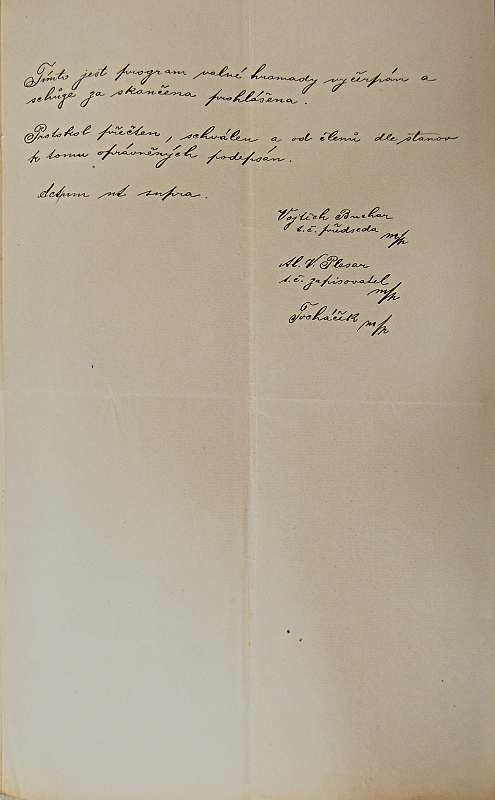 Tímto jest program valné hromady vyčerpán a
schůze za skončena prohlášena.
Protokol přečten, schválen a od členů dle stanov
k tomu oprávněných podepsán.
Actum ut supra.
Vojtěch Buchar
t.č. předseda m/p
Al. V. Plesar
t.č. zapisovatel
m/p
Tocháček m/p